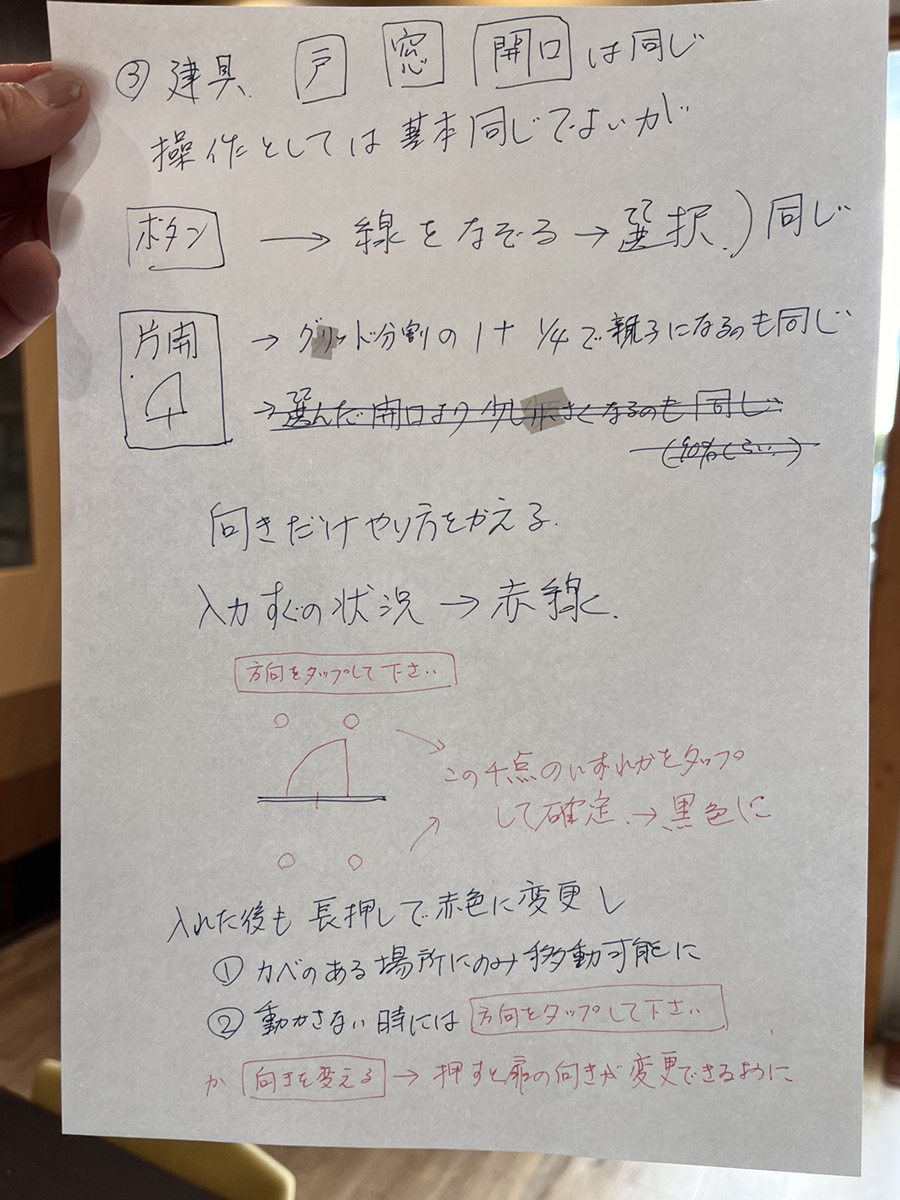 ③ 建具 戸 窓 開口 は同じ
操作としては基本同じでよいが
ボタン → 線をなぞる → 選択.) 同じ
片開 → グリッド分割の 1+ 1/4で親子になるのも同じ
→ 選んだ開口より少し小さくなるのも同じ
(90%くらい)
向きだけやり方をかえる.
入力すぐの状況 → 赤線.
方向をタップして下さい
この4点のいずれかをタップ
して確定.→黒色に
入れた後も 長押しで赤色に変更し
① カベのある場所にのみ移動可能に
② 動かさない時には 方向をタップして下さい
か 向きを変える → 押すと扉の向きが変更できるように